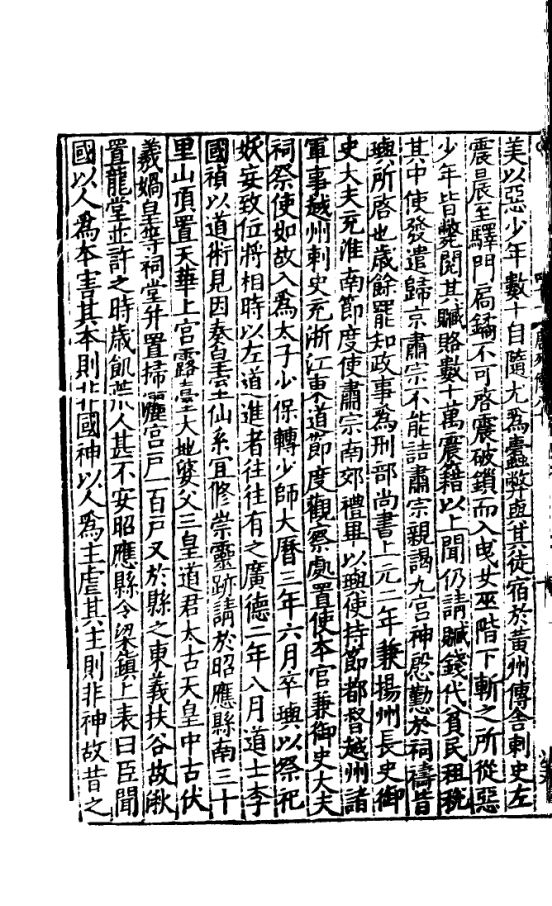 美以惡少年數十自隨尤爲蠹弊與其徒宿於黃州傳舍刺史左
震晨至驛門扃鐍不可啓震破鎖而入曳女巫階下斬之所從惡
少年皆斃閱其贓賂數十萬震籍以上聞仍請贓錢代貧民租稅
其中使發遣歸京肅宗不能詰肅宗親謁九宮神慇懃於祠禱皆
璵所啓也歲餘罷知政事爲刑部尚書上元二年兼揚州長史御
史大夫充淮南節度使肅宗南郊禮畢以璵使持節都督越州諸
軍事越州刺史充浙江東道節度觀察處置使本官兼御史大夫
祠祭使如故入爲太子少保轉少師大曆三年六月卒璵以祭祀
妖妄致位將相時以左道進者往往有之廣德二年八月道士李
國禎以道術見因奏皇室仙系宜修崇靈跡請於昭應縣南三十
里山頂置天華上宮露臺大地婆父三皇道君太古天皇中古伏
羲媧皇等祠堂并置掃灑宮戶一百戶又於縣之東義扶谷故湫
置龍堂並許之時歲飢荒人甚不安昭應縣令梁鎮上表曰臣聞
國以人爲本害其本則非國神以人爲主虐其主則非神故昔之